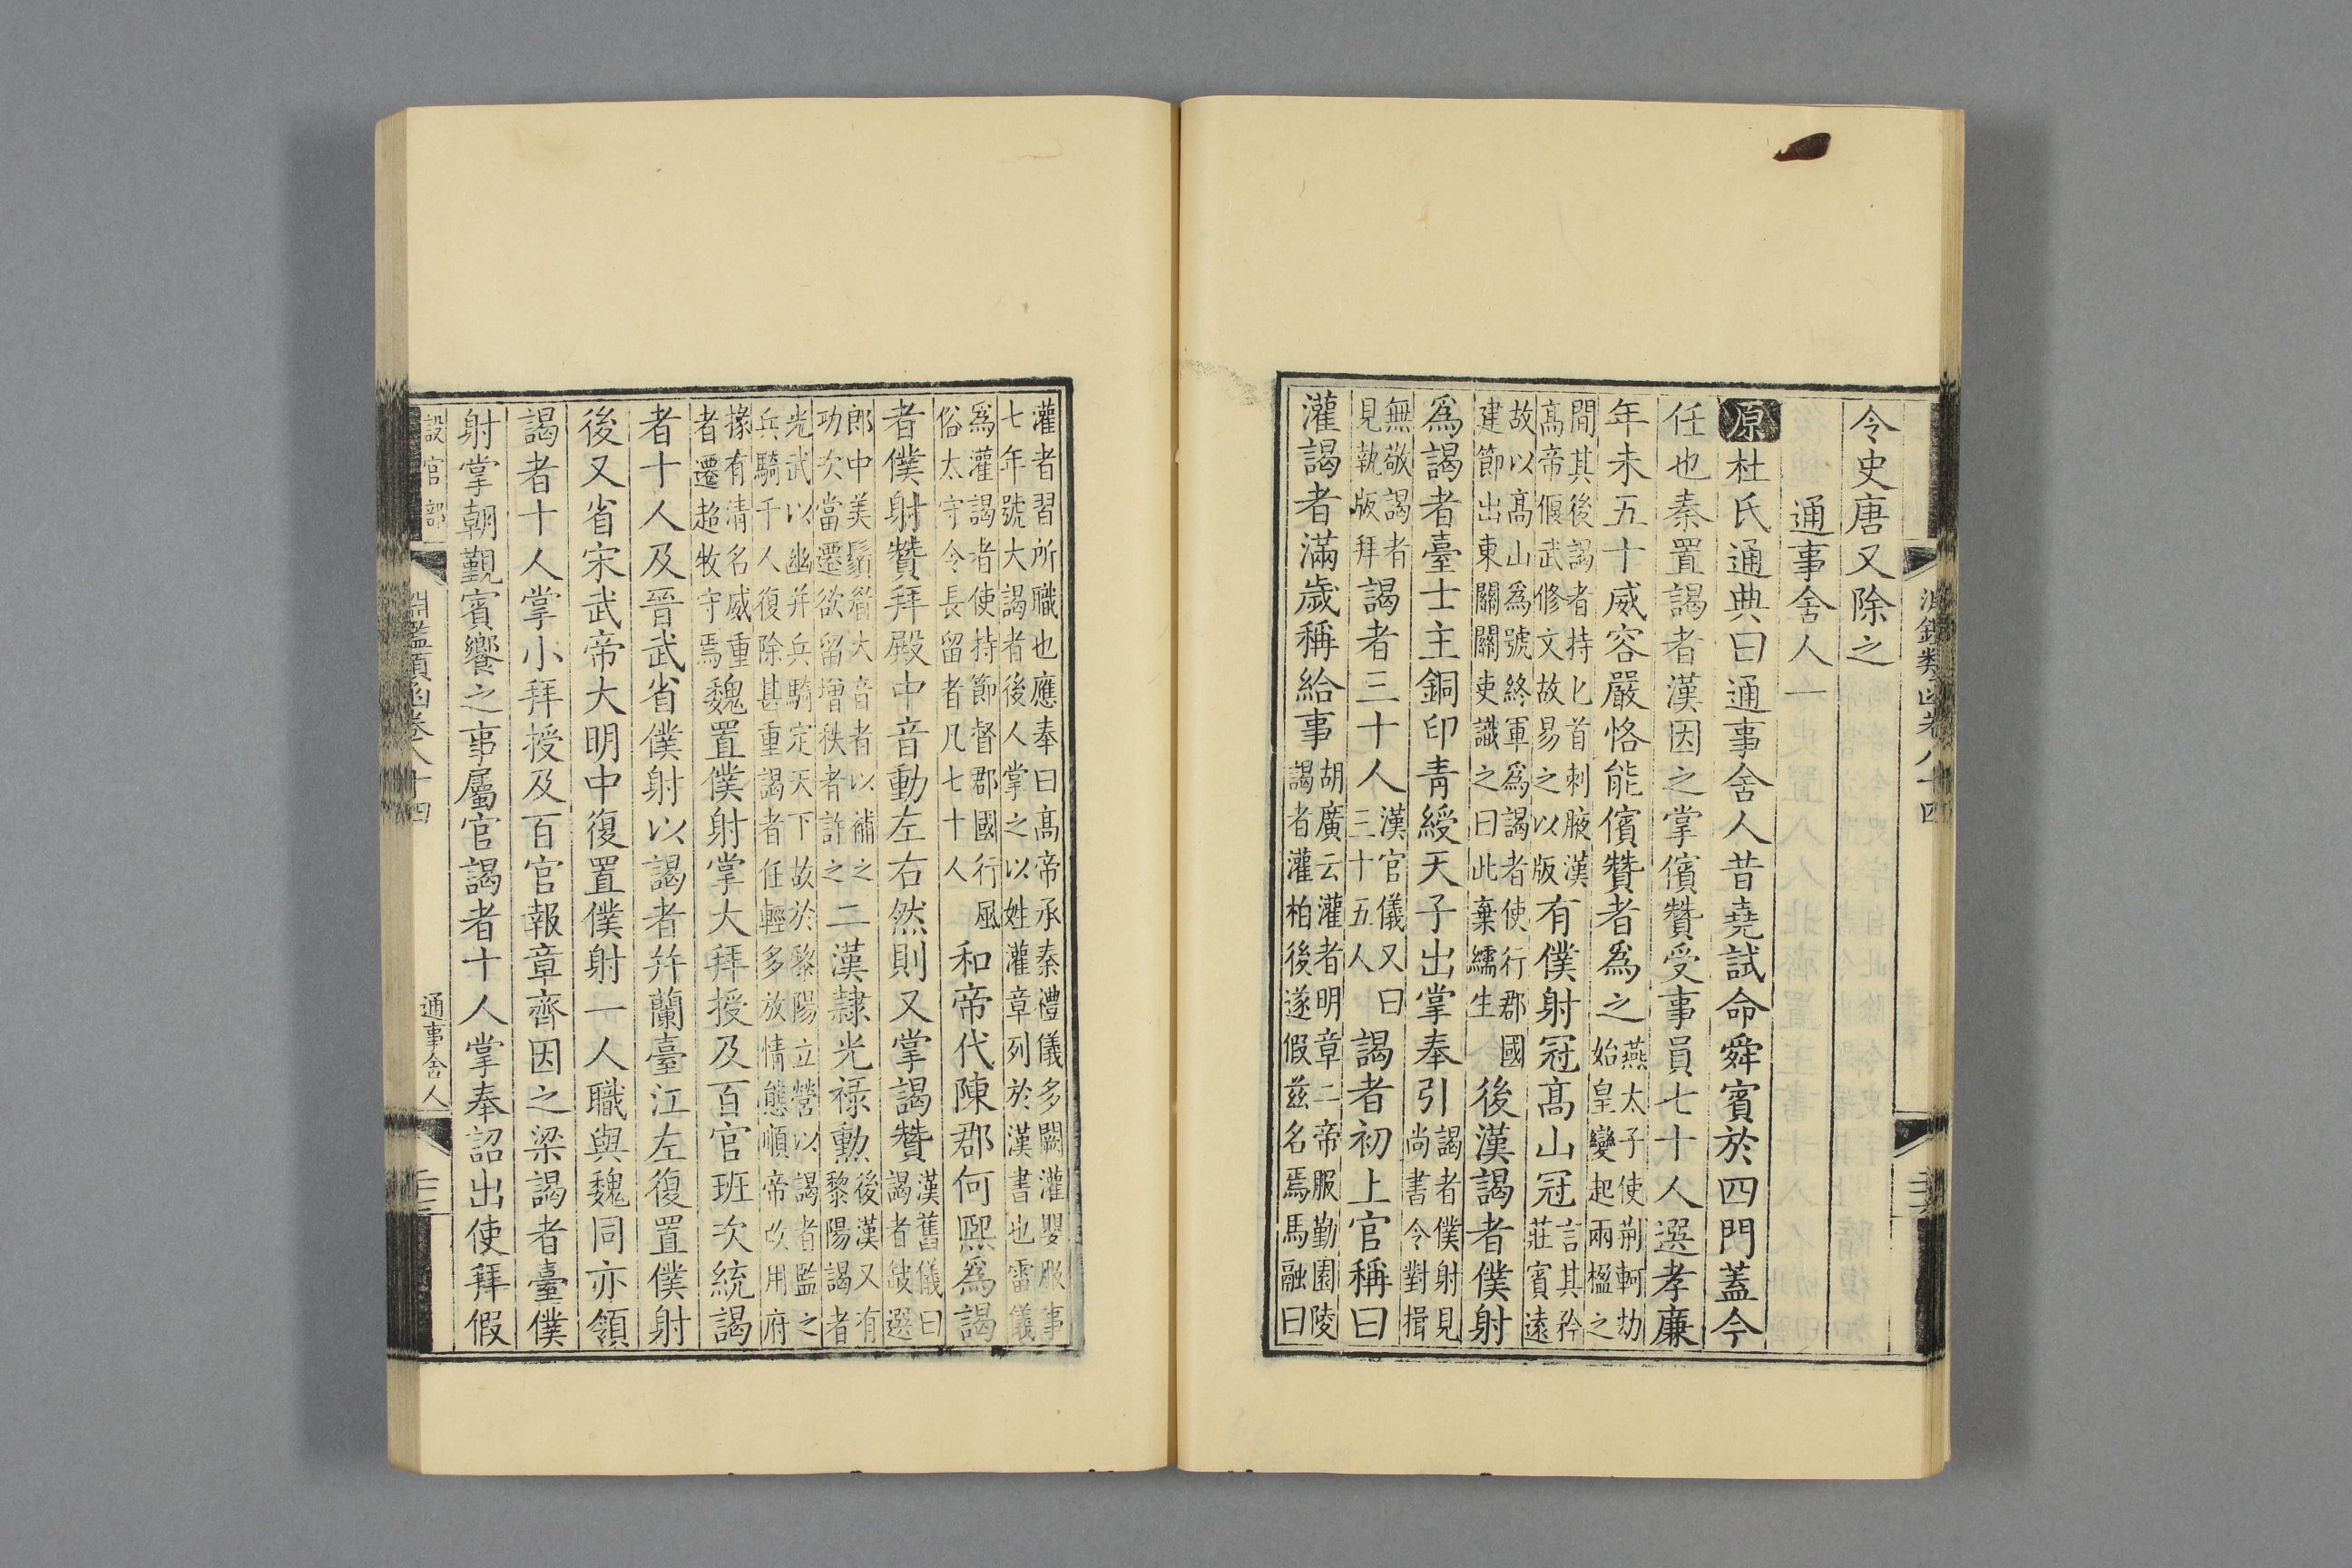 令史唐又除之
通事舍人一
原杜氏通典曰通事舍人昔堯試命舜賓於四門蓋今
任也秦置謁者漢因之掌儐贊受事員七十人選孝廉
年未五十威容嚴恪能儐贊者爲之燕太子使荆軻劫始皇變起兩楹之
間其後謁者持匕首刺腋漢高帝偃武修文故易之以版有僕射冠高山冠言其矜莊賓遠
故以高山爲號終軍爲謁者使行郡國建節出東關關吏識之曰此棄繻生後漢謁者僕射
爲謁者臺士主銅印青綬天子出掌奉引謁者僕射見尚書令對揖
無敬謁者見執版拜謁者三十人漢官儀又曰三十五人謁者初上官稱曰
灌謁者滿歲稱給事胡廣云灌者明章二帝服勤園陵謁者灌柏後遂假兹名焉馬融曰
灌者習所職也應奉曰高帝承秦禮儀多闕灌嬰服事七年號大謁者後人掌之以姓灌章列於漢書也雷儀
爲灌謁者使持節督郡國行風俗太守令長留者凡七十人和帝代陳郡何熙爲謁
者僕射贊拜殿中音動左右然則又掌謁贊漢舊儀曰謁者缺選
郎中美鬚眉大音者以補之功次當遷欲留增秩者許之二漢隷光禄勲後漢又有黎陽謁者
光武以幽并兵騎定天下故於黎陽立營以謁者監之兵騎千人復除甚重謁者任輕多放情態順帝改用府
掾有清名威重者遷超牧守焉魏置僕射掌大拜授及百官班次統謁
者十人及晉武省僕射以謁者并蘭臺江左復置僕射
後又省宋武帝大明中復置僕射一人職與魏同亦領
謁者十人掌小拜授及百官報章齊因之梁謁者臺僕
射掌朝覲賓饗之事屬官謁者十人掌奉詔出使拜假
設官部
淵鑑類函卷八十四
通事舍人